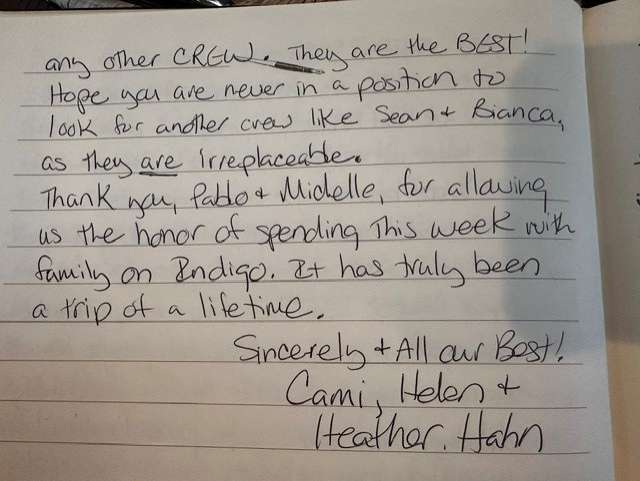 any other CREW. They are the BEST!
Hope you are never in a position to
look for another crew like Sean + Bianca,
as they are irreplaceable.
Thank you, Pablo + Michelle, for allowing
us the honor of spending this week with
family on Indigo. It has truly been
a trip of a lifetime.
Sincerely + All our Best!
Cami, Helen +
Heather. Hahn